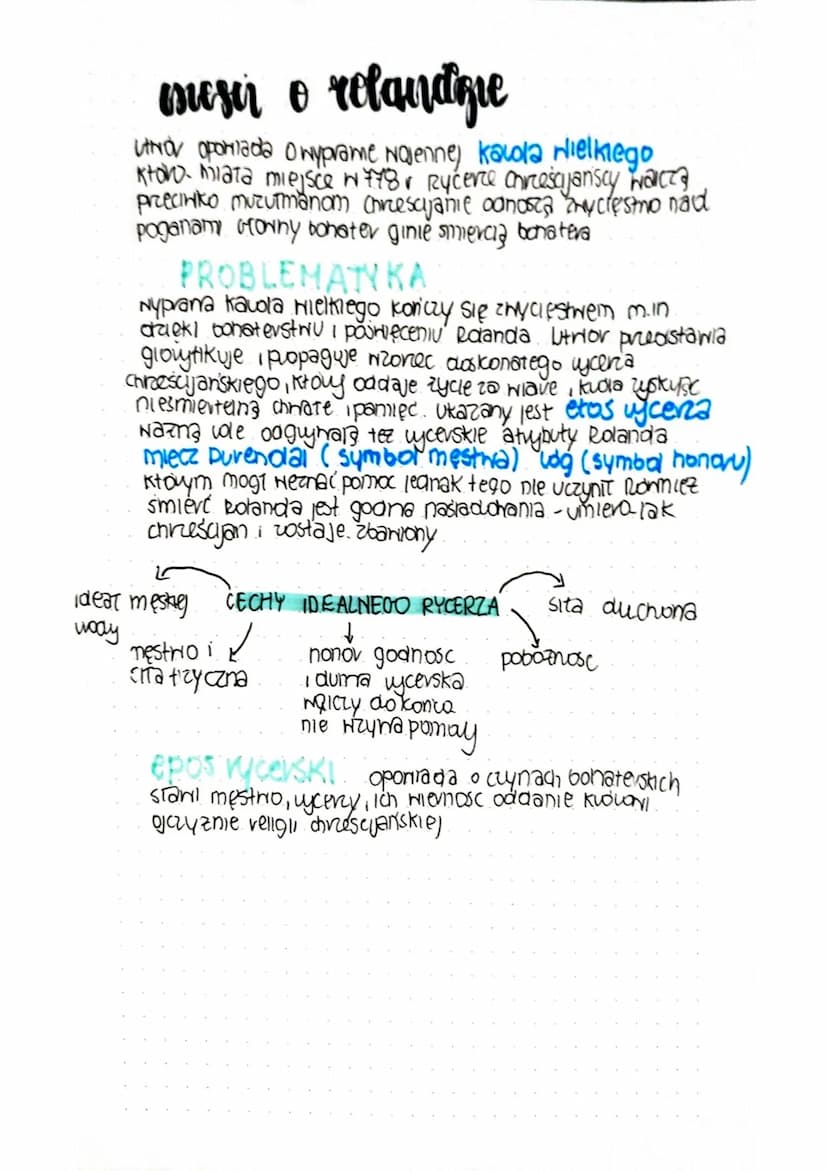 pieśń o rolandzie
Utwór opowiada o wyprawie wojennej Karola Wielkiego
która miała miejsce w 778 r Rycerze chrześcijańscy walczą
przeciwko muzułmanom chrześcijanie odnoszą zwycięstwo nad
poganami Główny bohater ginie śmiercią bohatera
PROBLEMATYKA
wyprawa Karola Wielkiego kończy się zwycięstwem m.in
dzięki bohaterstwu i poświęceniu Rolanda Utwór przedstawia
gloryfikuje i propaguje wzorzec doskonałego rycerza
chrześcijańskiego, który oddaje życie za wiarę, króla zyskując
nieśmiertelną chwałę i pamięć. Ukazany jest etos rycerza
Ważną rolę odgrywają też rycerskie atrybuty Rolanda
miecz Durendal (symbol męstwa) róg (symbol honoru)
którym mógł wezwać pomoc jednak tego nie uczynił Również
śmierć Rolanda jest godna naśladowania - umiera jak
chrześcijan i zostaje zbawiony
CECHY IDEALNEGO RYCERZA
ideał męskiej
urody
męstwo i
siła fizyczna
honor godność
i duma rycerska
walczy do końca
nie wzywa pomocy
pobożność
siła duchowa
epos rycerski opowiada o czynach bohaterskich
sławi męstwo, rycerzy, ich wierność oddanie królowi
ojczyźnie religii chrześcijańskiej